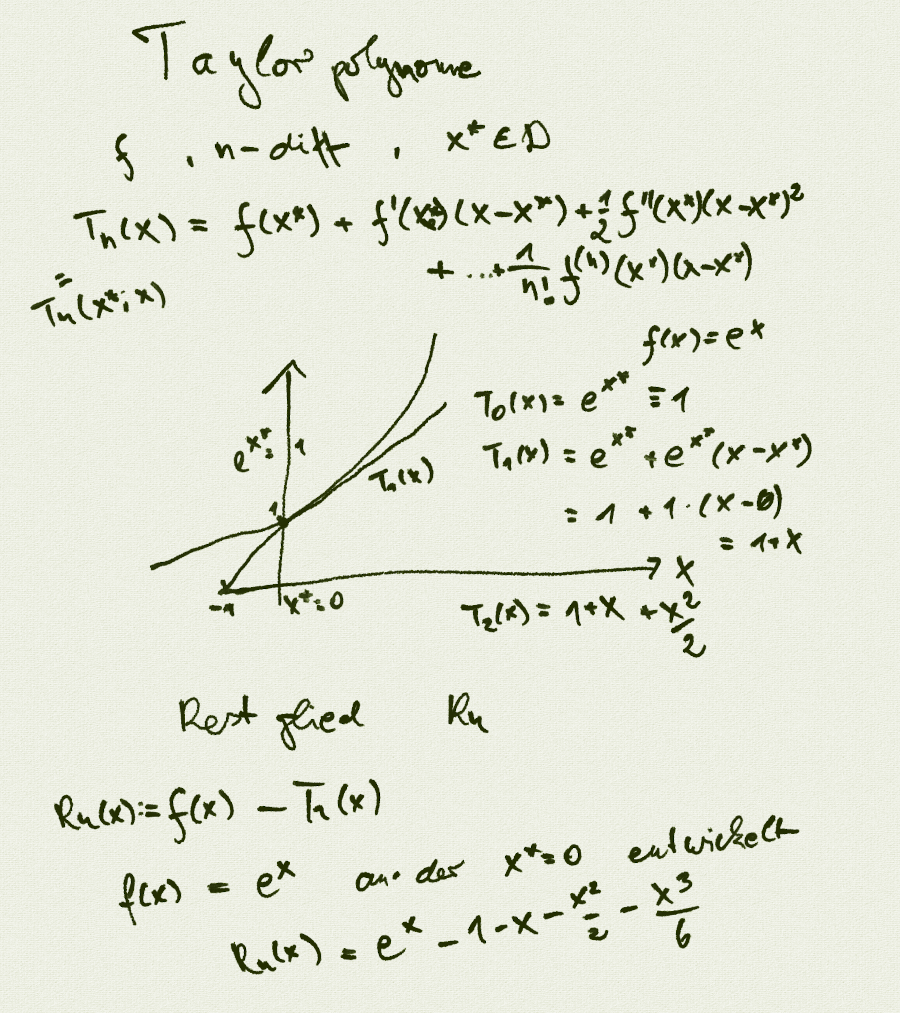 Taylorpolynome
f , n-diff , x* ∈ D
Tn(x) = f(x*) + f'(x*)(x-x*) + 1/2 f''(x*)(x-x*)²
+ ...+ 1/n! f⁽ⁿ⁾(x*)(x-x*)
=
Tn(x*; x)
f(x) = eˣ
T₀(x) = e^x* ≡ 1
e^x* = 1
T₁(x)
T₁(x) = e^x* + e^x*(x-x*)
= 1 + 1·(x-0)
= 1+x
1
x
-1
x*=0
T₂(x) = 1+x + x²/2
Restglied Rn
Rn(x) := f(x) - Tn(x)
f(x) = eˣ an der x*=0 entwickelt
Rn(x) = eˣ - 1 - x - x²/2 - x³/6